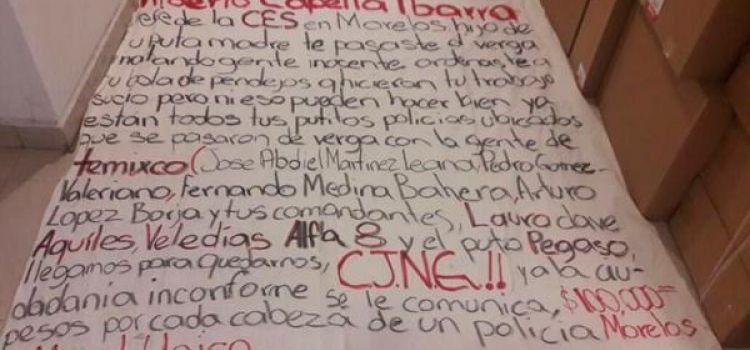 Alberto Capella Ibarra
Jefe de la CES en Morelos, hijo de
tu puta madre te pasaste d verga
matando gente inocente ordenaste a
tu bola de pendejos q hicieran tu trabajo
sucio pero ni eso pueden hacer bien ya
están todos tus putitos policias ubicados
que se pasaron de verga con la gente de
temixco (Jose Abdiel Martinez Leana, Pedro Gomez-
Valeriano, Fernando Medina Bahera, Arturo
Lopez Borja y tus comandantes, Lauro clave
Aquiles, Veledias Alfa 8 y el puto Pegaso,
llegamos para quedarnos, C.J.N.G.!! ya la ciu-
dadania inconforme se le comunica, $100,000=
pesos por cada cabeza de un policia Morelos